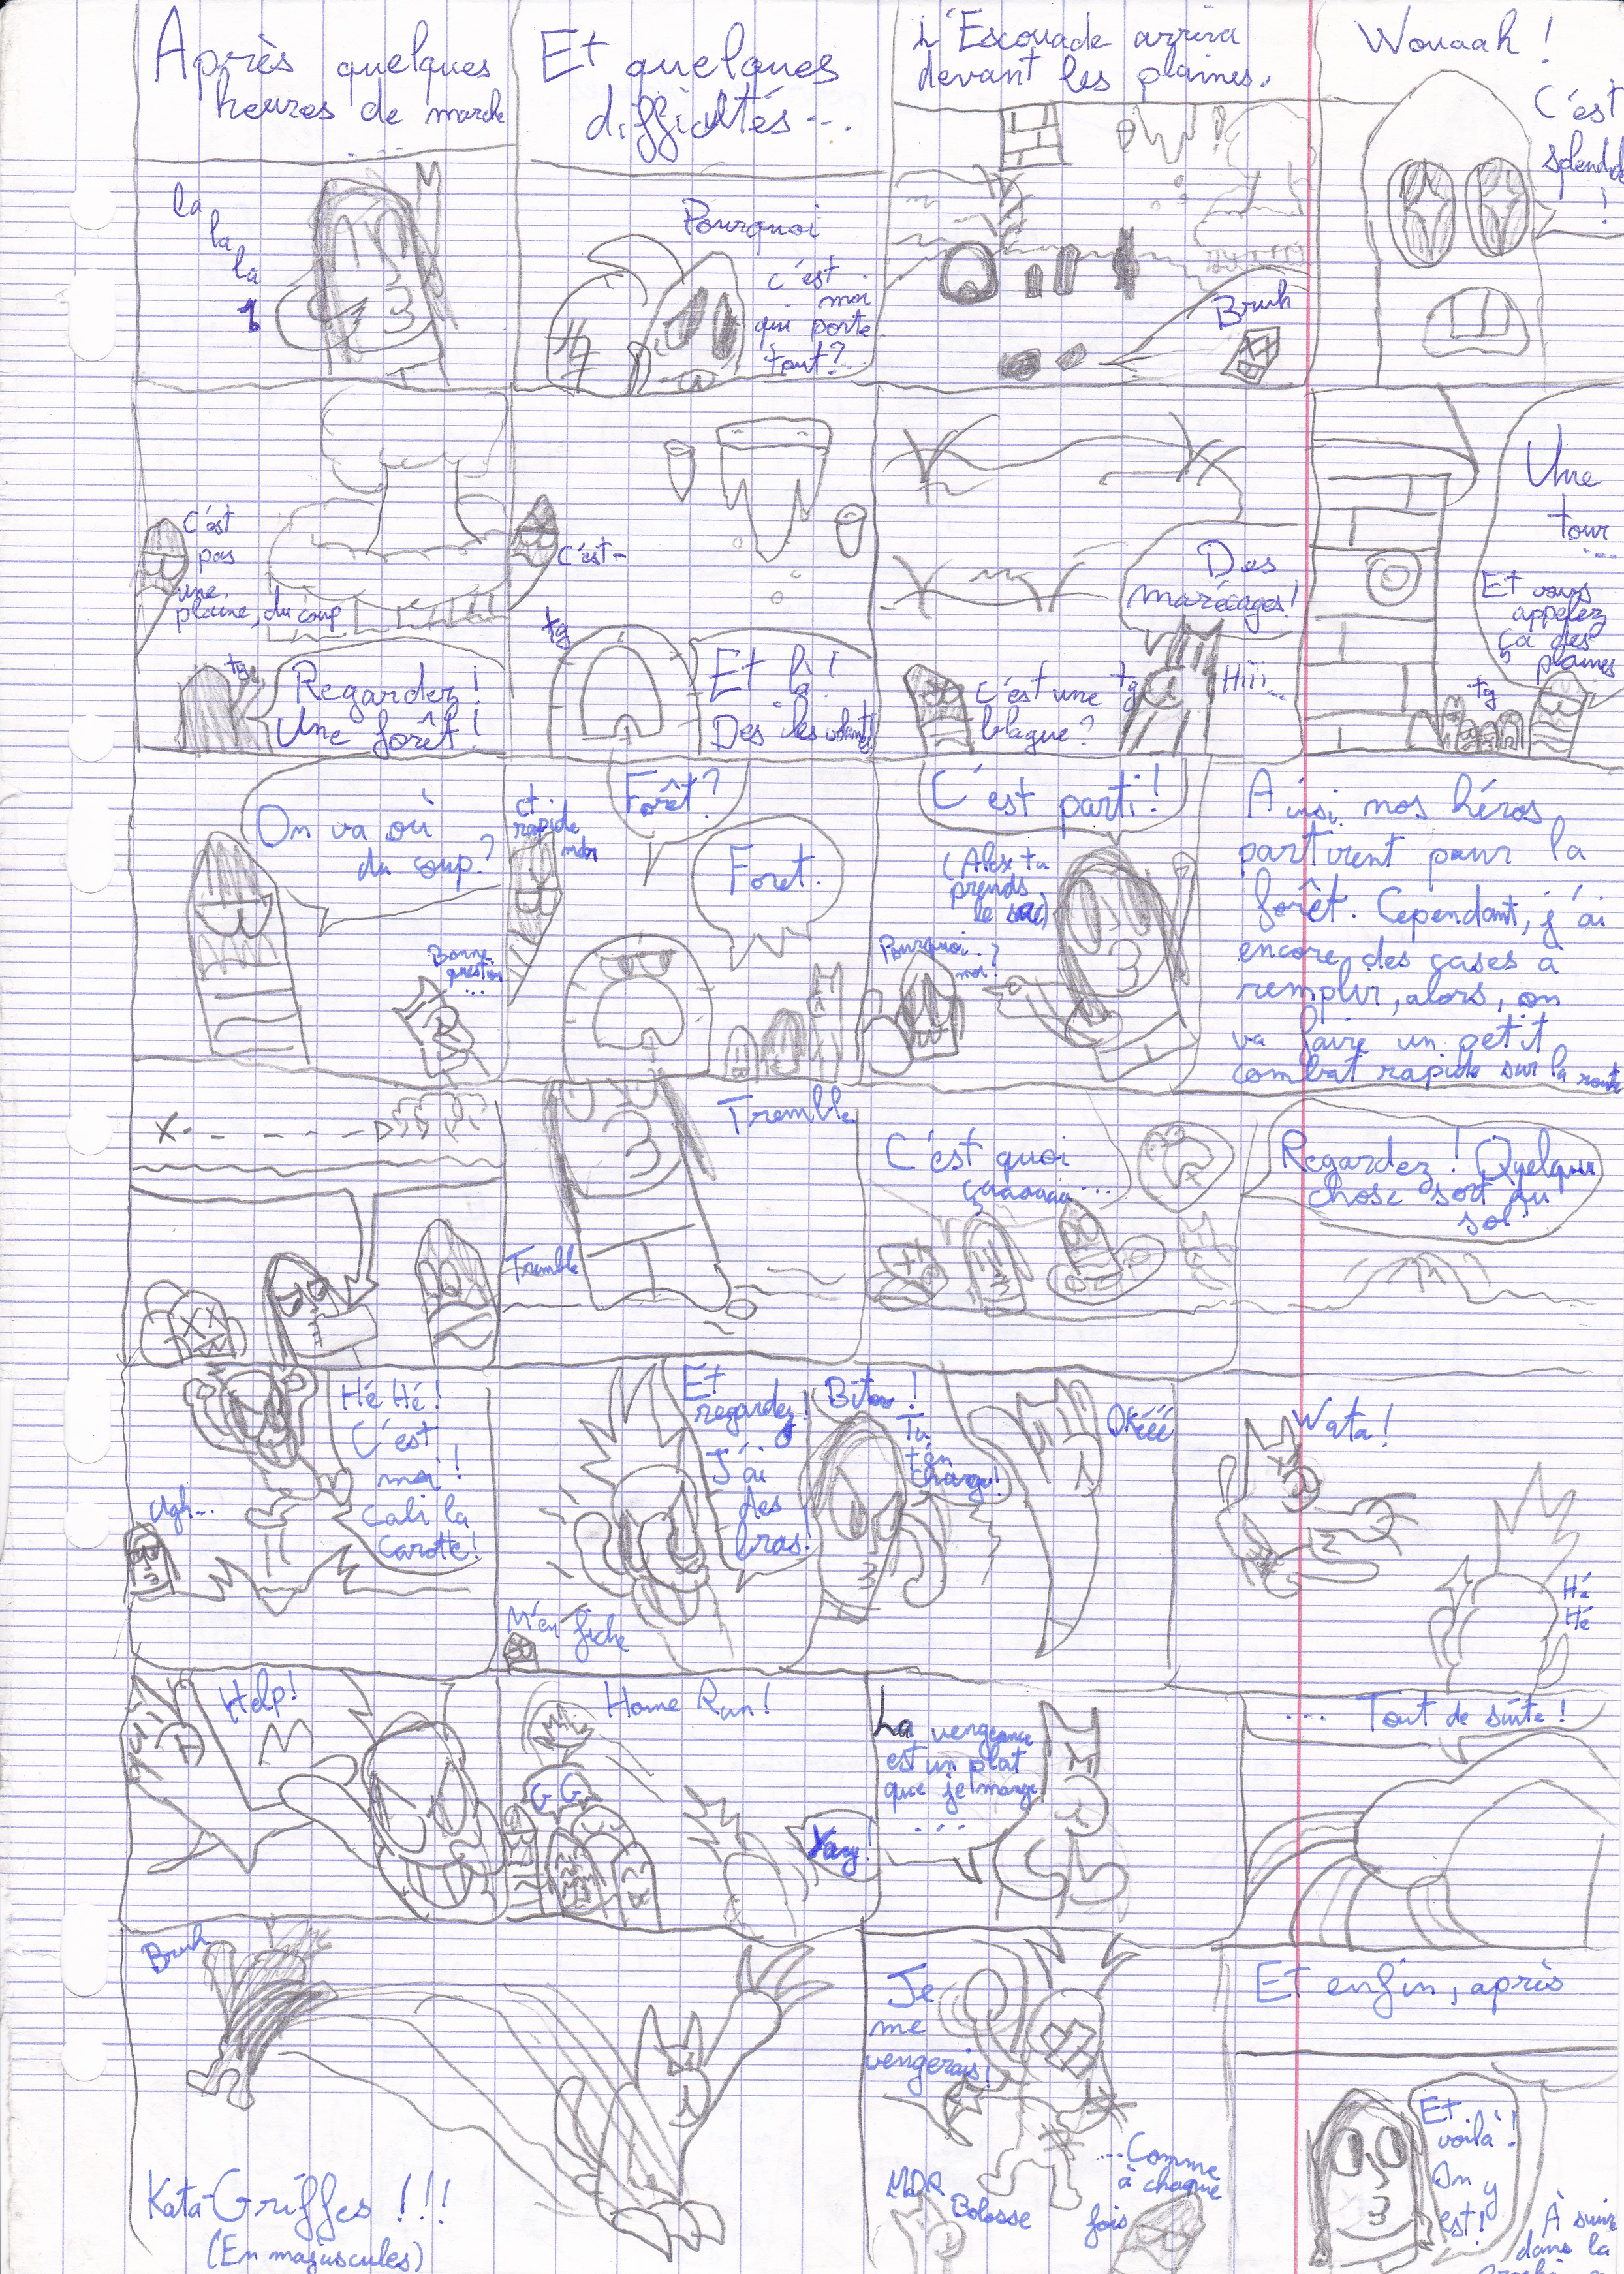 Après quelques
heures de marche
...
la
la
la
Et quelques
difficultés...
Pourquoi
c'est
moi
qui porte
tout?
L'Escouade arriva
devant les plaines.
Bruh
Wouaah !
C'est
splendide
!
C'est
pas
une
plaine, du coup
tg
Regardez !
Une forêt !
C'est-
tg
Et là !
Des îles volantes!
Des
marécages!
C'est une
blague?
tg
Hiii...
Une
tour
...
Et vous
appelez
ça des
plaines
tg
On va où
du coup?
Bonne
question
...
et
rapide
mdr
Forêt?
Foret.
C'est parti !
(Alex tu
prends
le sac)
Pourquoi
moi?
Ainsi nos héros
partirent pour la
forêt. Cependant, j'ai
encore des cases à
remplir, alors, on
va faire un petit
combat rapide sur la route
X
Tremble
Tremble
C'est quoi
çaaaaaa...
Regardez ! Quelque
chose sort du
sol!
Ugh...
Hé Hé !
C'est
moi !
Cali la
Carotte!
Et
regardez!
J'ai
des
bras!
M'en fiche
Bitos !
Tu
t'en
charge!
Okééé
Wata !
Hé
Hé
Help!
Home Run !
GG
Yay!
La vengeance
est un plat
que je mange
...
... Tout de suite !
Bruh
Kata-Griffes !!!
(En majuscules)
Je
me
vengerais!
MDR
Bolosse
...Comme
à chaque
fois
Et enfin, après
Et
voilà!
On y
est!
À suivre
dans la